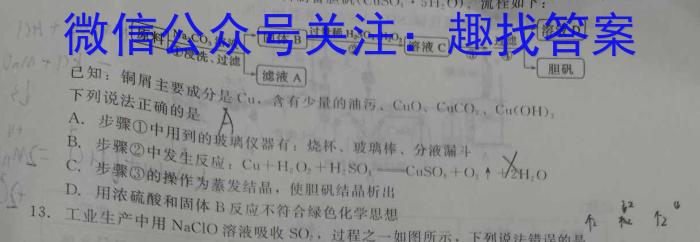 胆矾(CuSO₄·5H₂O),流程如下:
微信公众号关注:趣找答案
原料 Na₂CO₃ 过滤 固体B 过量稀H₂SO₄ H₂O₂ 溶液C 溶液D
①浸洗、过滤 ② ③
滤液A 胆矾
已知:铜屑主要成分是Cu,含有少量的油污、CuO、CuCO₃、Cu(OH)₂
下列说法正确的是 A
A. 步骤①中用到的玻璃仪器有:烧杯、玻璃棒、分液漏斗
B. 步骤②中发生反应:Cu+H₂O₂+H₂SO₄——CuSO₄+O₂↑+2H₂O
C. 步骤③的操作为蒸发结晶,使胆矾结晶析出
D. 用浓硫酸和固体B反应不符合绿色化学思想
13. 工业生产中用NaClO溶液吸收SO₂,过程之一如图所示,下列说法错误的是